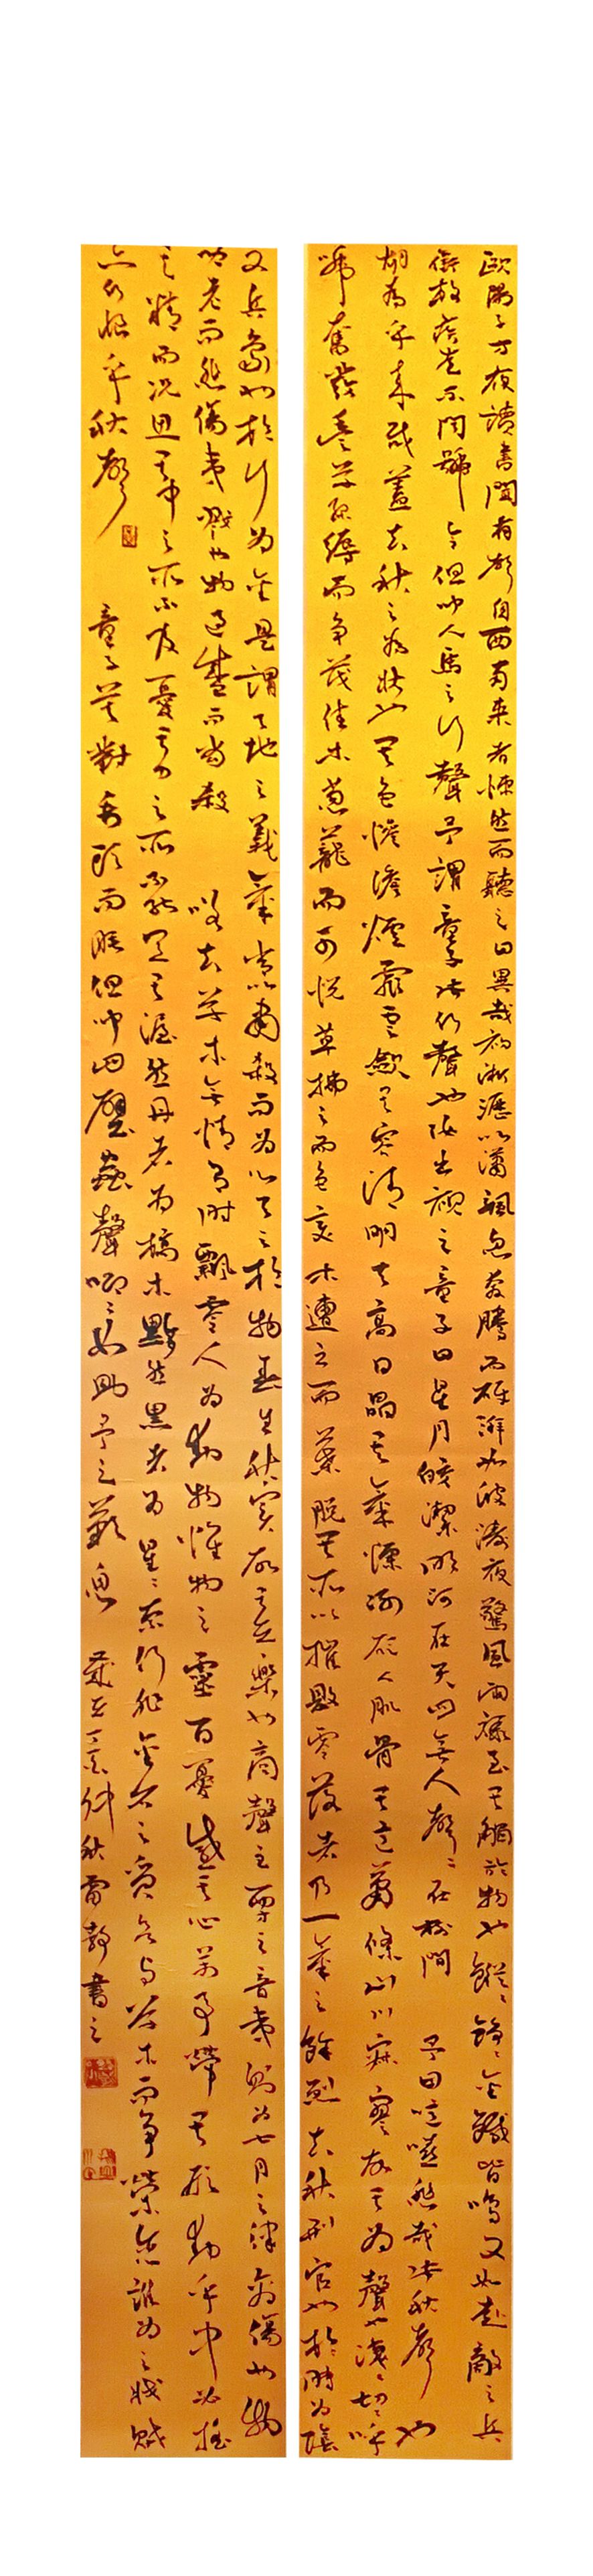 歐陽子方夜讀書聞有聲自西南來者悚然而聽之曰異哉初淅瀝以瀟颯忽奔騰而砰湃如波濤夜驚風雨驟至其觸於物也鏦鏦錚錚金鐵皆鳴又如赴敵之兵
銜枚疾走不聞號令但聞人馬之行聲予謂童子此何聲也汝出視之童子曰星月皎潔明河在天四無人聲聲在樹間 予曰噫嘻悲哉此秋聲也
胡為乎來哉蓋夫秋之為狀也其色慘淡煙霏雲斂其容清明天高日晶其氣慄冽砭人肌骨其意蕭條山川寂寥故其為聲也淒淒切切呼
號奮發豐草綠縟而爭茂佳木蔥蘢而可悅草拂之而色變木遭之而葉脫其所以摧敗零落者乃一氣之餘烈夫秋刑官也於時為陰
又兵象也於行為金是謂天地之義氣常以肅殺而為心天之於物春生秋實故其在樂也商聲主西之音夷則為七月之律商傷也物
既老而悲傷夷戮也物過盛而當殺 嗟夫草木無情有時飄零人為動物惟物之靈百憂感其心萬事勞其形動乎中必搖
其精而況思其中之所不及憂其力之所不能宜其渥然丹者為槁木黟然黑者為星星奈何非金石之質欲與草木而爭榮念誰為之戕賊
亦何恨乎秋聲 童子莫對垂頭而睡但聞四壁蟲聲唧唧如助予之歎息 歲在仲秋雷靜書之